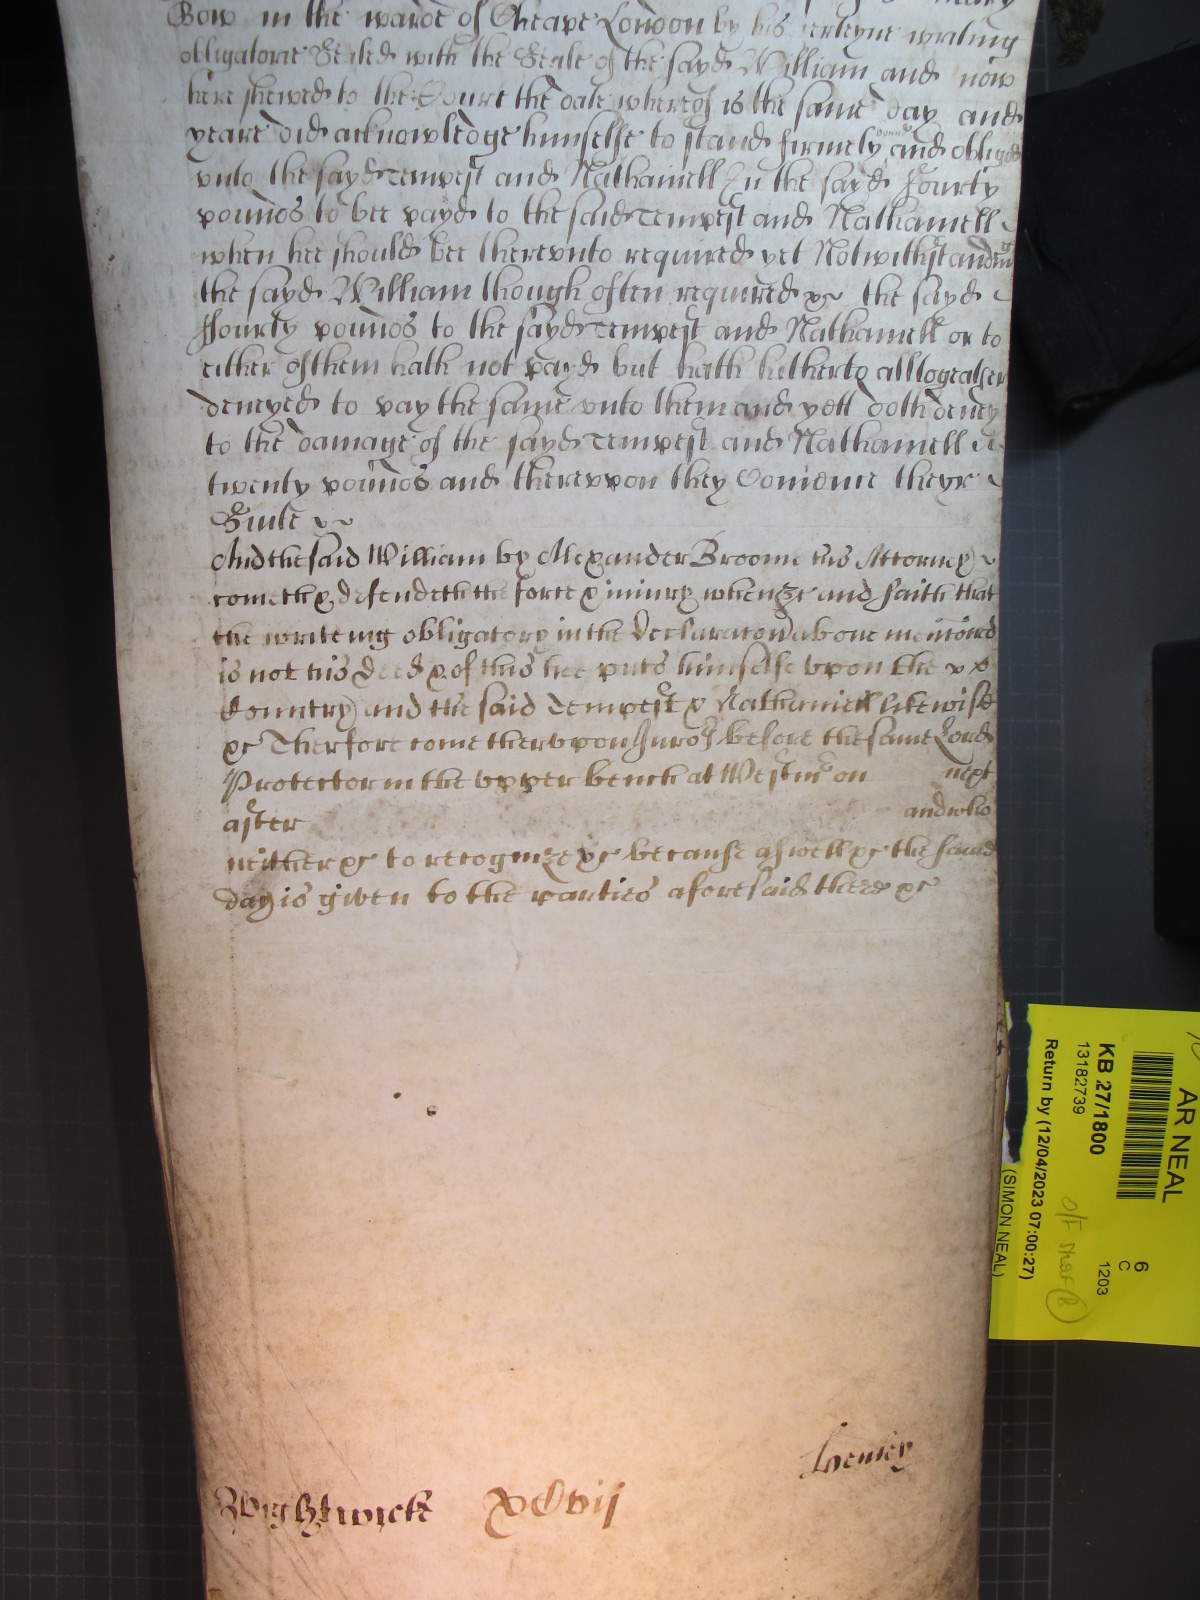 Bow in the warde of Cheape London by his certeyne writing
obligatorie Sealed with the Seale of the sayd William and now
here shewed to the Court the date whereof is the same day and
yeare did acknowledge himselfe to stand firmely bound and obliged
vnto the sayd Tempest and Nathaniell In the sayd Fourty
pounds to bee payd to the said Tempest and Nathaniell
when hee should bee therevnto required yet Notwithstanding
the sayd William though often required &c the sayd
ffourty pounds to the sayd Tempest and Nathaniell or to
either of them hath not payd but hath hitherto alltogeather
denyed to pay the same vnto them and yett doth deny
to the damage of the sayd Tempest and Nathaniell
twenty pounds and therevpon they theyr
Suite &c
And the said William by Alexander Broome his Attorney
cometh & defendeth the force & iniury when &c and saith that
the writeing obligatory in the Declaraton aboue mentoned
is not his deed & of this hee puts himselfe vpon the
Country and the said Tempest & Nathaniell likewise
&c Therfore come thervpon Juros before the same Lord
Protector in the vpper bench at Westmr on next
after and who
neither &c to recognize &c because aswell &c the same
day is given to the parties aforesaid there &c
Wightwick xcvij
AR NEAL
KB 27/1800
13182739
Return by (12/04/2023 07:00:27)
(SIMON NEAL)
6
C
1203